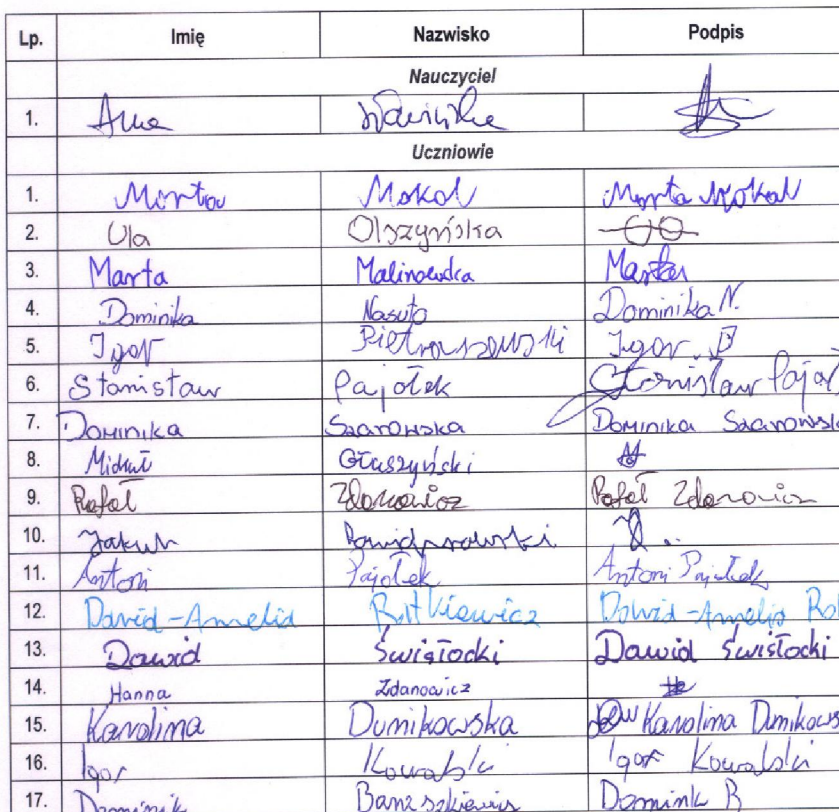 Lp. Imię Nazwisko Podpis
Nauczyciel
1. Anna
Uczniowie
1. Marta Mokal Marta Mokal
2. Ula Olszyńska
3. Marta Malinowska Marta
4. Dominika Nasuto Dominika N.
5. Igor Pietraszewski Igor. P
6. Stanisław Pajołek Stanisław Pajoł
7. Dominika Szarowska Dominika Szarowsk
8. Michał Głuszyński
9. Rafał Zdanowicz Rafał Zdanowicz
10. Jakub
11. Antoni Pajołek Antoni Pajołek
12. Dawid-Amelia Dawid-Amelia
13. Dawid Świsłocki Dawid Świsłocki
14. Hanna Zdanowicz
15. Karolina Dumikowska Karolina Dumikows
16. Igor Kowalski Igor Kowalski
17. Dominik Dominik B